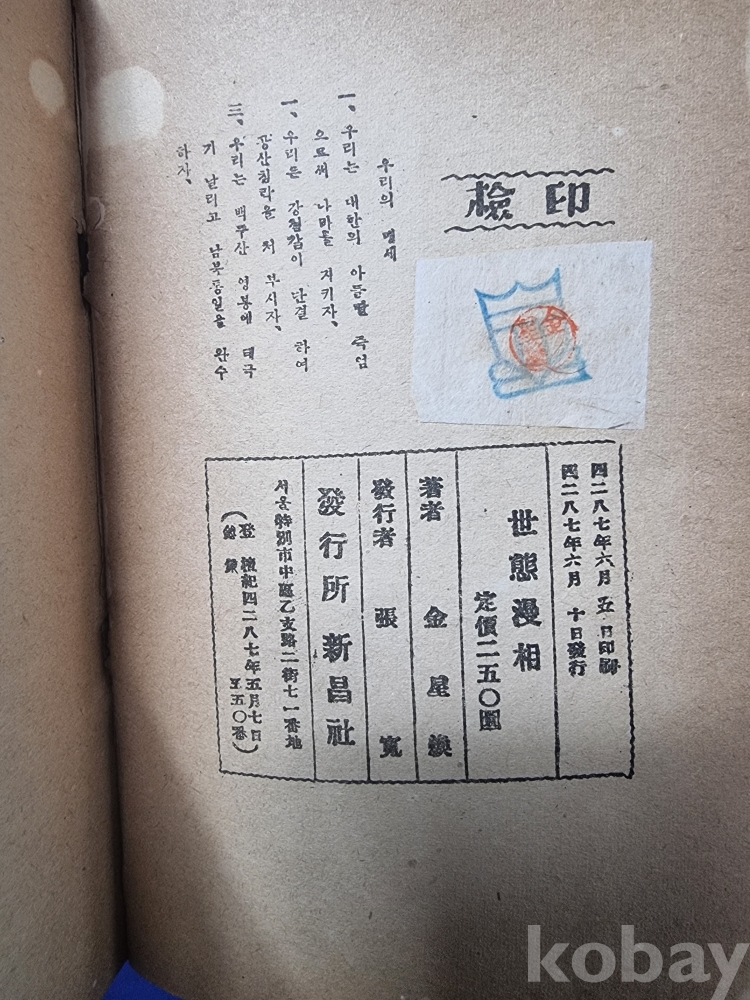 檢印
四二八七年六月 五日印刷
四二八七年六月 十日發行
世態漫相
定價二五〇圜
著者 金星煥
發行者 張寬
發行所 新昌社
서울特別市中區乙支路二街七一番地
(登錄 檀紀四二八七年五月七日
五〇番)
우리의 맹세
一、우리는 대한의 아들딸 죽엄
으로써 나라를 지키자、
一、우리는 강철같이 단결 하여
공산침략을 처 부시자、
三、우리는 백두산 영봉에 태극
기 날리고 남북통일을 완수
하자、
kobay